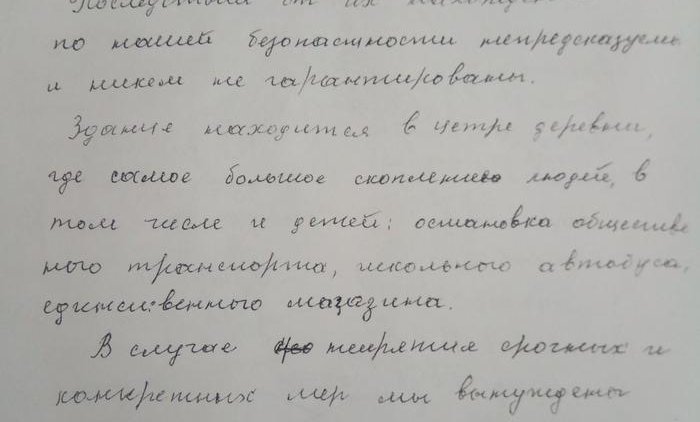 Последствия от их
по нашей безопастности непредсказуемы
и никем не гарантированы.
Здание находится в цетре деревни,
где самое большое скопление людей, в
том числе и детей: остановка обществен
ного транспорта, школьного автобуса,
единственного магазина.
В случае неприятия срочных и
конкретных мер мы вынуждены